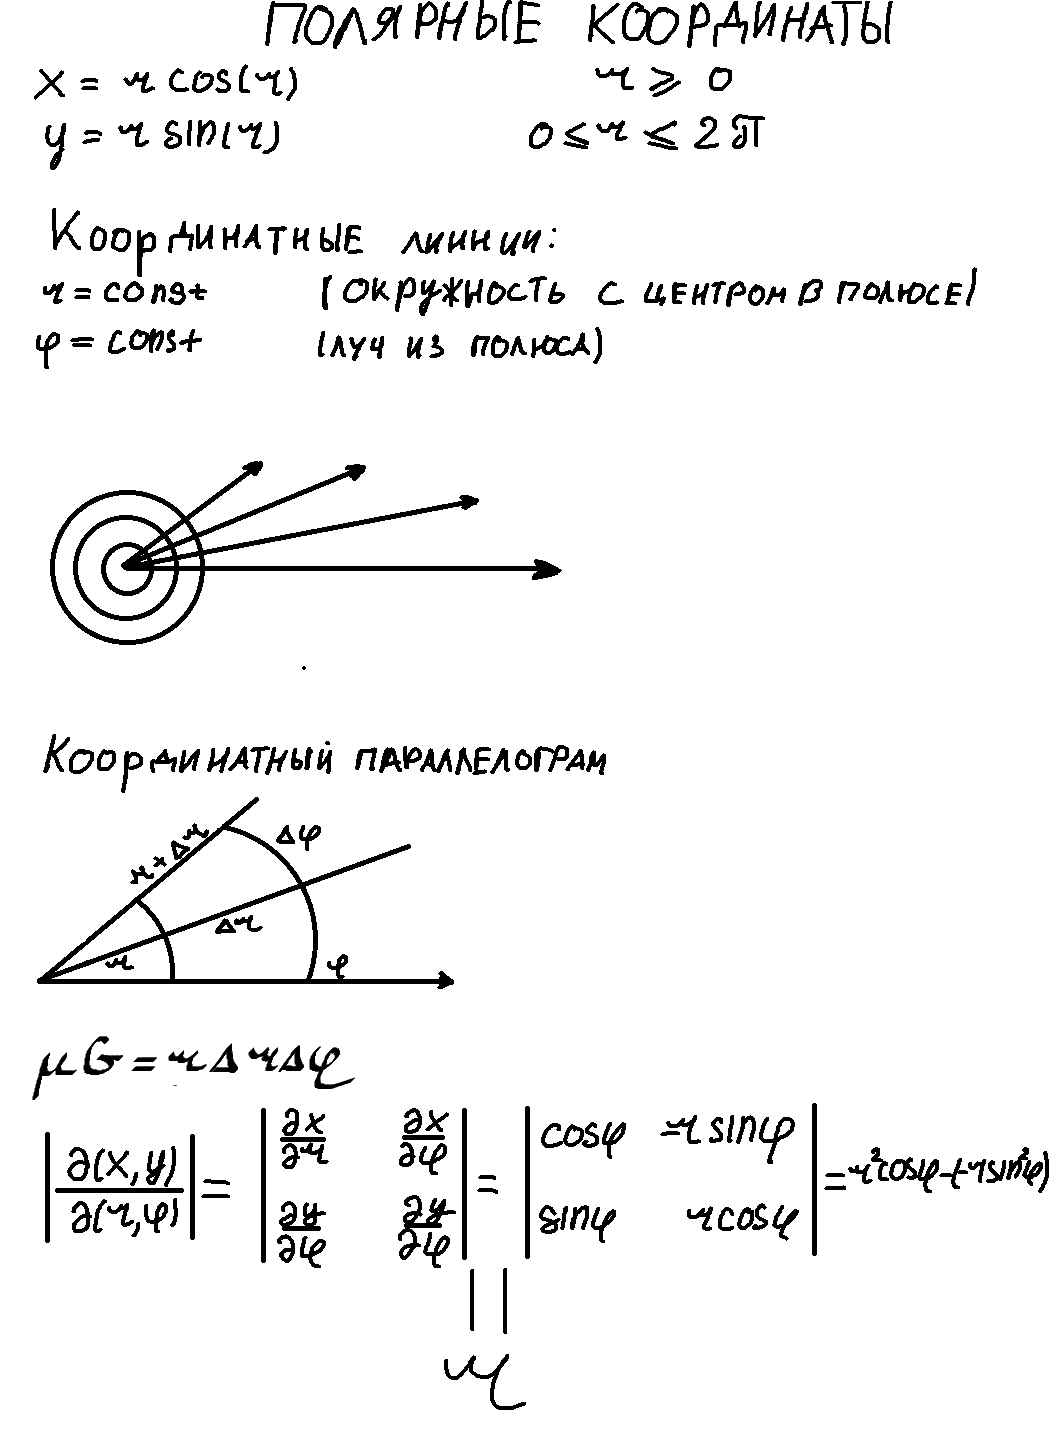 ПОЛЯРНЫЕ КООРДИНАТЫ
x = r cos(r) r ⩾ 0
y = r sin(r) 0 ⩽ r ⩽ 2π
Координатные линнии:
r = const (окружность с центром в полюсе)
φ = const (луч из полюса)
Координатный параллелограм
r + Δr Δφ
Δr
r φ
μG = r Δ r Δφ
|∂(x,y)/∂(r,φ)| = |∂x/∂r ∂x/∂φ| = |cosφ =r sinφ| = r²cosφ-(-r sin²φ)
|∂y/∂φ ∂y/∂φ| |sinφ r cosφ|
||
r